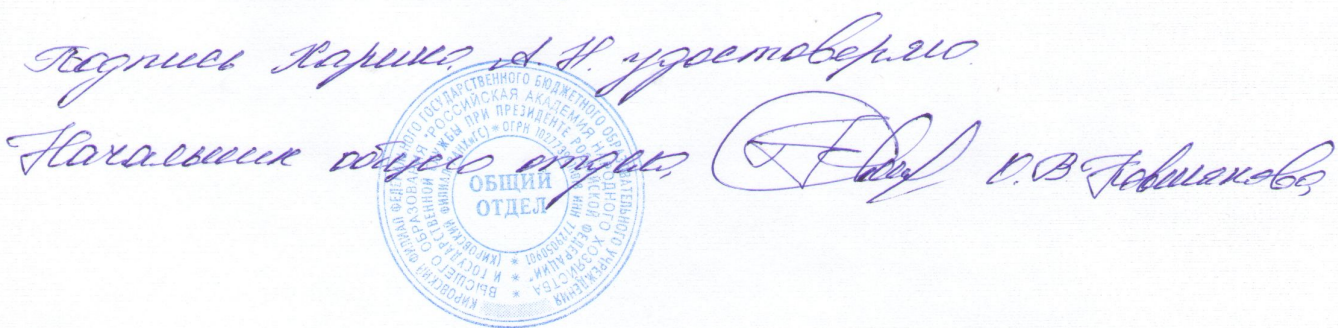 Подпись Харина А.Н. удостоверяю.
Начальник общего отдела О.В. Ковшанова
КИРОВСКИЙ ФИЛИАЛ ФЕДЕРАЛЬНОГО ГОСУДАРСТВЕННОГО БЮДЖЕТНОГО ОБРАЗОВАТЕЛЬНОГО УЧРЕЖДЕНИЯ
ВЫСШЕГО ОБРАЗОВАНИЯ "РОССИЙСКАЯ АКАДЕМИЯ НАРОДНОГО ХОЗЯЙСТВА
И ГОСУДАРСТВЕННОЙ СЛУЖБЫ ПРИ ПРЕЗИДЕНТЕ РОССИЙСКОЙ ФЕДЕРАЦИИ"
(КИРОВСКИЙ ФИЛИАЛ РАНХиГС) * ОГРН ИНН 7729050901
ОБЩИЙ
ОТДЕЛ